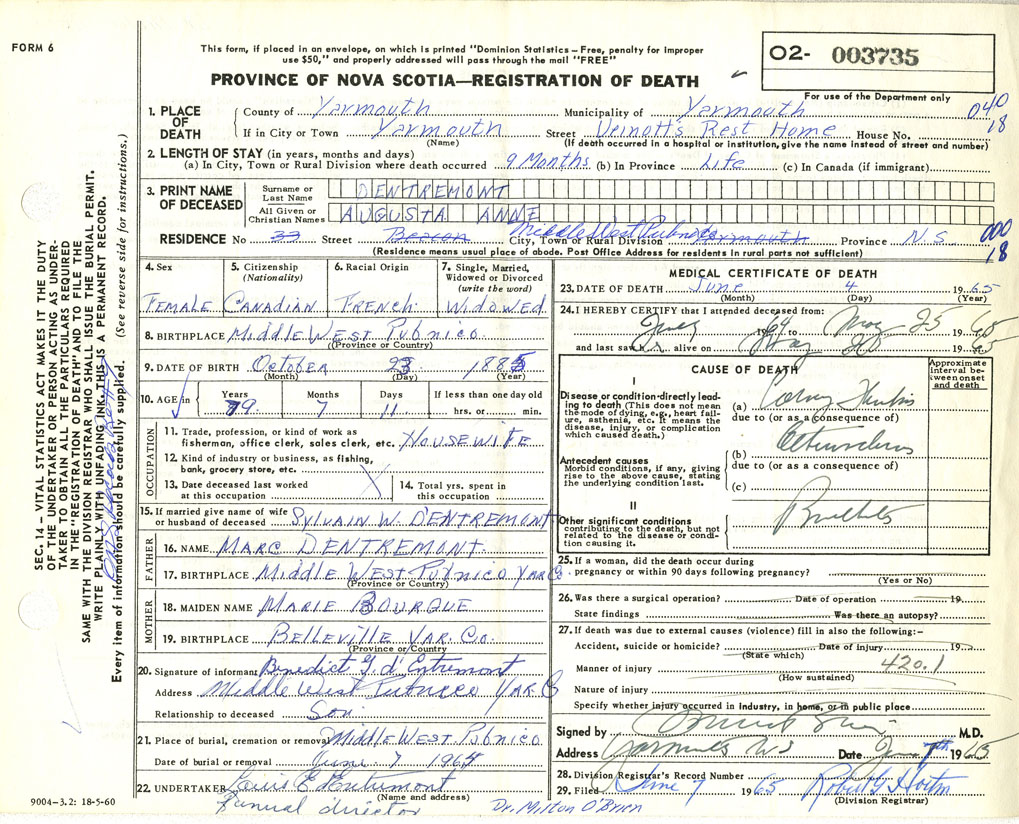 FORM 6
This form, if placed in an envelope, on which is printed "Dominion Statistics – Free, penalty for improper
use $50," and properly addressed will pass through the mail "FREE"
PROVINCE OF NOVA SCOTIA—REGISTRATION OF DEATH
02- 003735
For use of the Department only
040
18
1. PLACE OF DEATH
County of Yarmouth Municipality of Yarmouth
If in City or Town Yarmouth Street Veinott's Rest Home House No.
(Name) (If death occurred in a hospital or institution, give the name instead of street and number)
2. LENGTH OF STAY (in years, months and days)
(a) In City, Town or Rural Division where death occurred 9 Months (b) In Province Life (c) In Canada (if immigrant)
3. PRINT NAME OF DECEASED
Surname or Last Name DENTREMONT
All Given or Christian Names AUGUSTA ANNE
RESIDENCE No 33 Street Beacon City, Town or Rural Division Middle West Pubnico Yarmouth Province N.S.
000
18
(Residence means usual place of abode. Post Office Address for residents in rural parts not sufficient)
4. Sex
FEMALE
5. Citizenship
(Nationality)
CANADIAN
6. Racial Origin
FRENCH
7. Single, Married, Widowed or Divorced
(write the word)
WIDOWED
8. BIRTHPLACE MIDDLE WEST PUBNICO
(Province or Country)
9. DATE OF BIRTH October 23 1885
(Month) (Day) (Year)
10. AGE in
Years Months Days If less than one day old
79 7 11 hrs. or min.
OCCUPATION
11. Trade, profession, or kind of work as fisherman, office clerk, sales clerk, etc. HOUSEWIFE
12. Kind of industry or business, as fishing, bank, grocery store, etc.
13. Date deceased last worked at this occupation
14. Total yrs. spent in this occupation
15. If married give name of wife or husband of deceased SYLVAIN W. D'ENTREMONT
FATHER
16. NAME MARC DENTREMONT
17. BIRTHPLACE MIDDLE WEST PUBNICO YAR CO.
(Province or Country)
MOTHER
18. MAIDEN NAME MARIE BOURQUE
19. BIRTHPLACE BELLEVILLE YAR. CO.
(Province or Country)
20. Signature of informant Benedict G. d'Entremont
Address Middle West Pubnico YAR Co
Relationship to deceased Son
21. Place of burial, cremation or removal MIDDLE WEST PUBNICO
Date of burial or removal June 7 1965
22. UNDERTAKER Louis E D'Entremont
(Name and address)
Funeral director
Dr. Milton O'Brien
9004–3.2: 18-5-60
MEDICAL CERTIFICATE OF DEATH
23. DATE OF DEATH June 4 1965
(Month) (Day) (Year)
24. I HEREBY CERTIFY that I attended deceased from:
July 1964 to May 25 1965
and last saw h alive on May 1965
CAUSE OF DEATH
Approximate interval between onset and death
I
Disease or condition directly leading to death (This does not mean the mode of dying, e.g., heart failure, asthenia, etc. It means the disease, injury, or complication which caused death.)
(a)
due to (or as a consequence of)
Antecedent causes
Morbid conditions, if any, giving rise to the above cause, stating the underlying condition last.
(b)
due to (or as a consequence of)
(c)
II
Other significant conditions contributing to the death, but not related to the disease or condition causing it.
25. If a woman, did the death occur during
pregnancy or within 90 days following pregnancy?
(Yes or No)
26. Was there a surgical operation? Date of operation 19
State findings Was there an autopsy?
27. If death was due to external causes (violence) fill in also the following:–
Accident, suicide or homicide? Date of injury 19
(State which)
Manner of injury 420.1
(How sustained)
Nature of injury
Specify whether injury occurred in industry, in home, or in public place
Signed by M.D.
Address Yarmouth NS Date June 7th 1965
28. Division Registrar's Record Number
29. Filed June 7 1965
(Division Registrar)
SEC. 14 – VITAL STATISTICS ACT MAKES IT THE DUTY
OF THE UNDERTAKER OR PERSON ACTING AS UNDER-
TAKER TO OBTAIN ALL THE PARTICULARS REQUIRED
IN THE "REGISTRATION OF DEATH" AND TO FILE THE
SAME WITH THE DIVISION REGISTRAR WHO SHALL ISSUE THE BURIAL PERMIT.
WRITE PLAINLY WITH UNFADING INK. THIS IS A PERMANENT RECORD.
Every item of information should be carefully supplied. (See reverse side for instructions.)